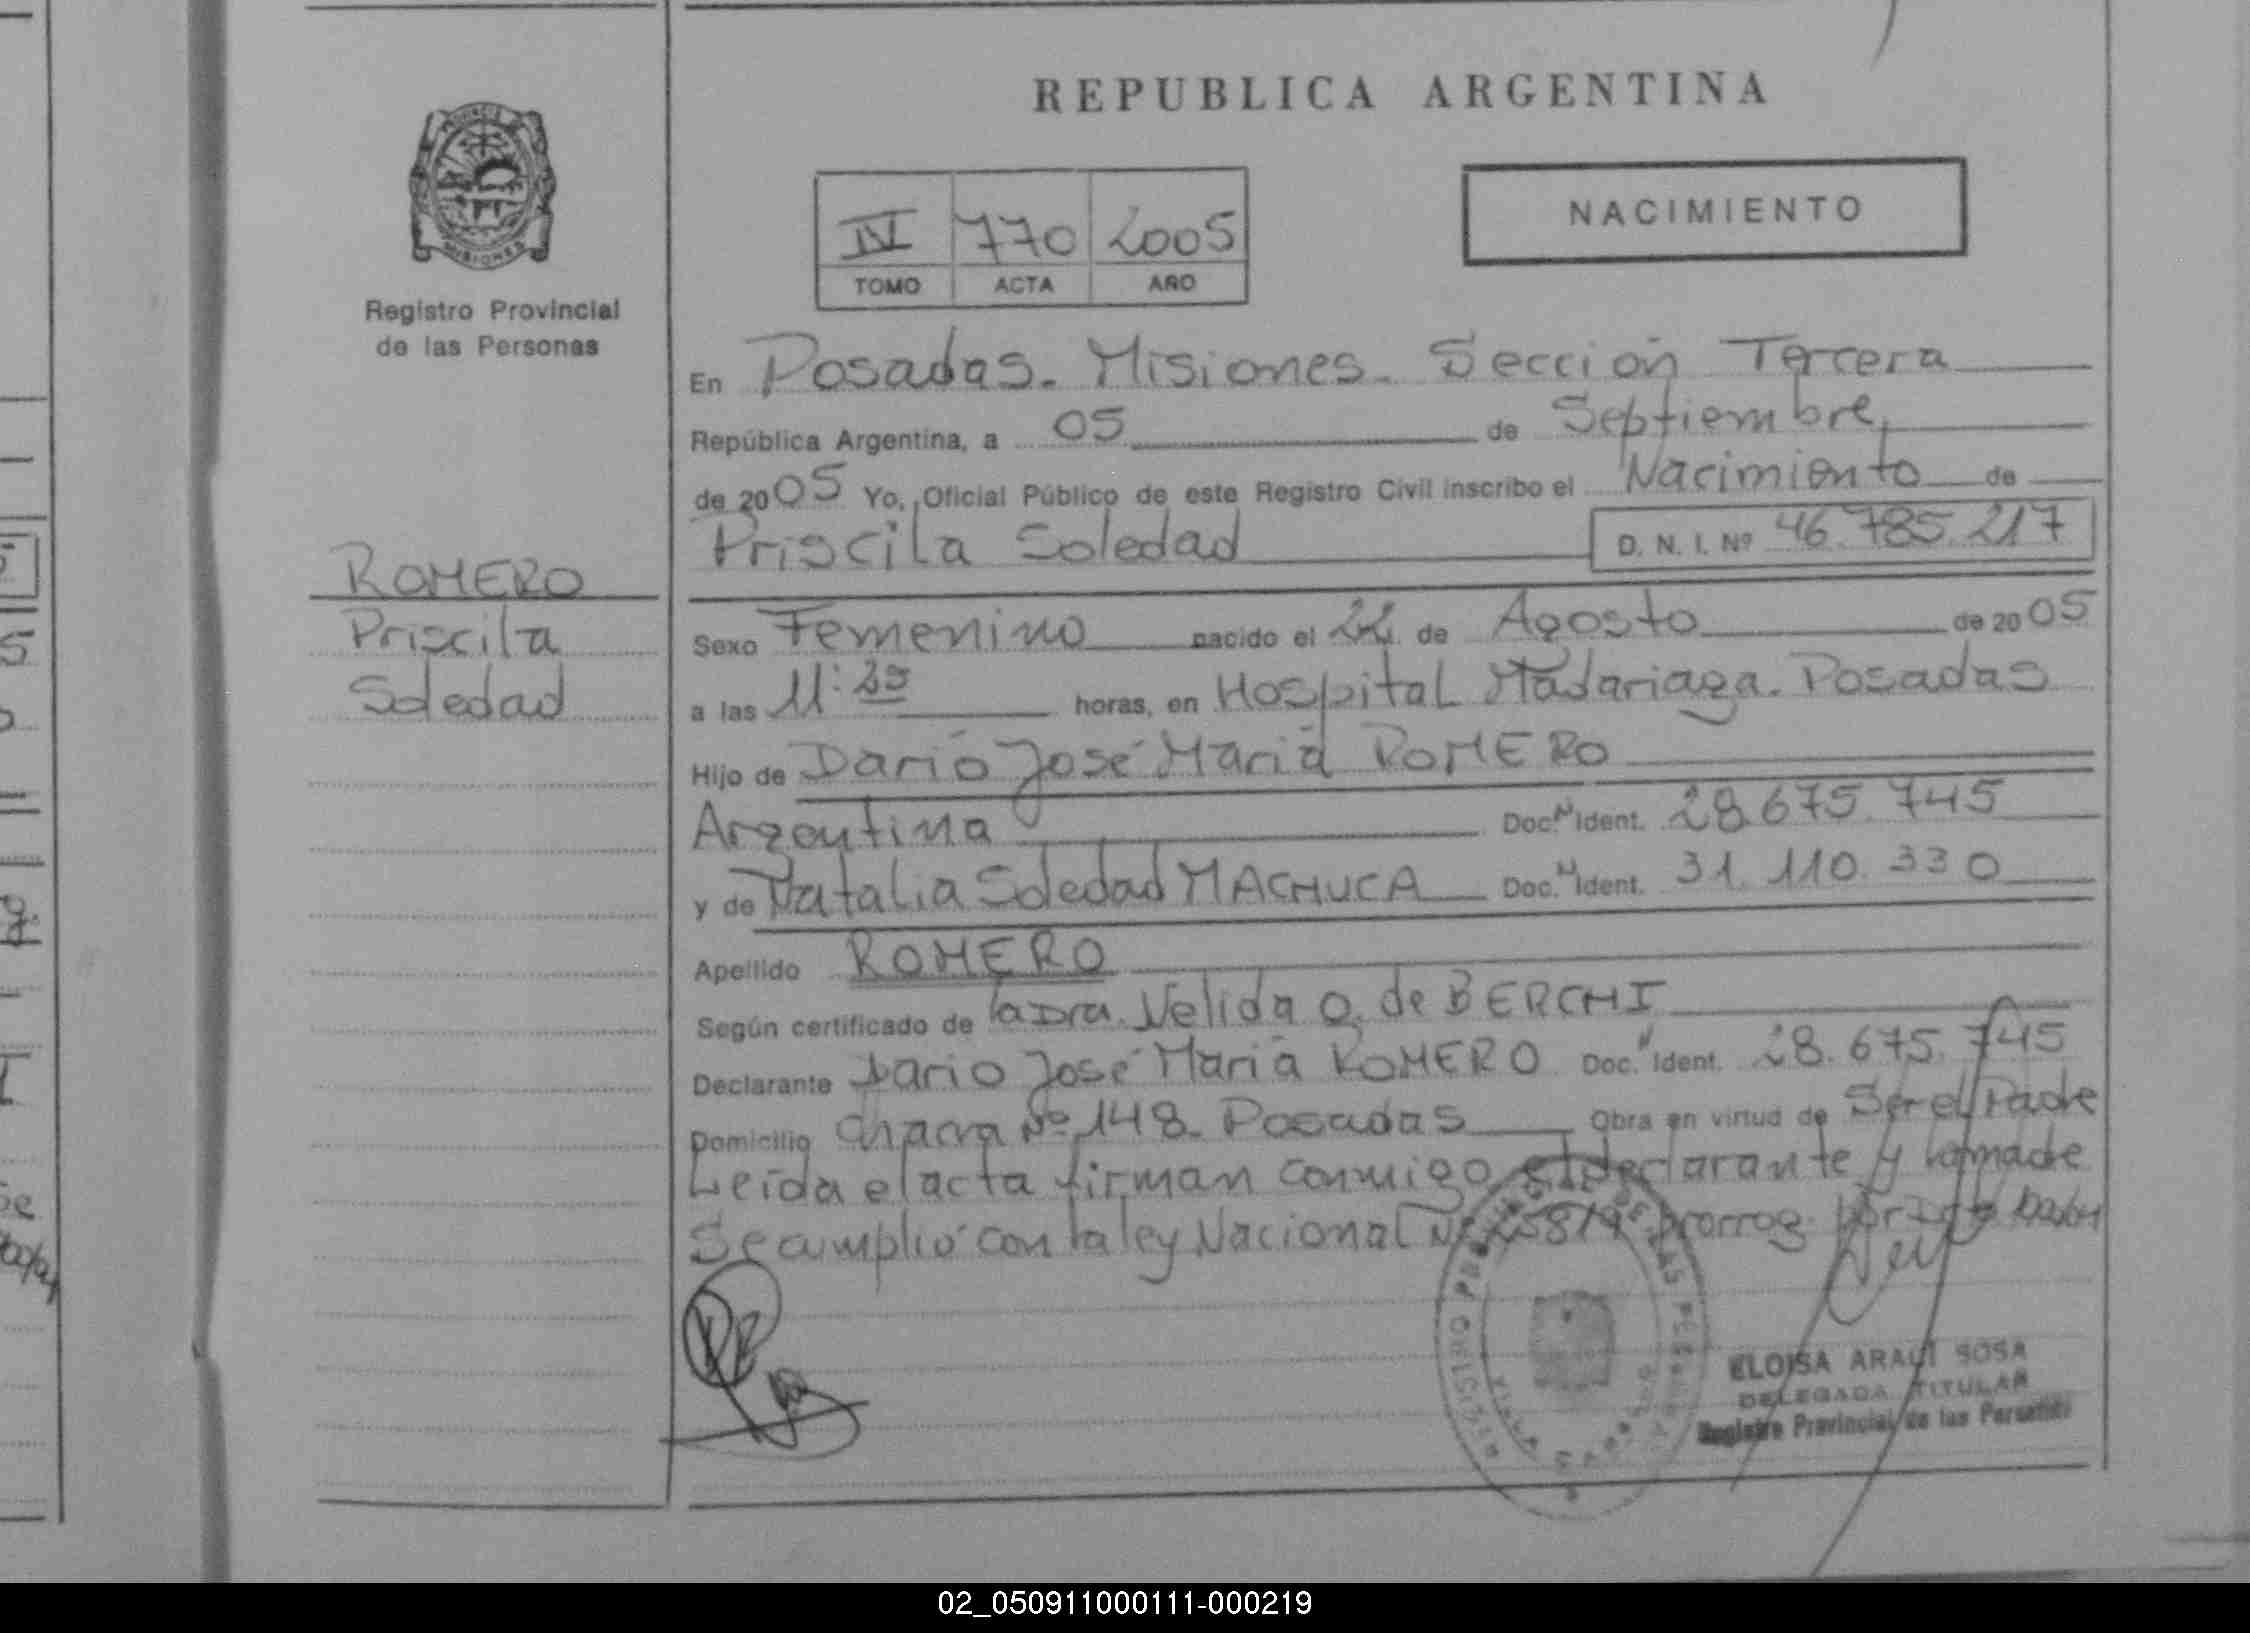 REPUBLICA ARGENTINA
NACIMIENTO
IV 770 2005
TOMO ACTA AÑO
PROVINCIA DE MISIONES
Registro Provincial
de las Personas
En Posadas. Misiones. Sección Tercera
República Argentina, a 05 de Septiembre,
de 2005 Yo, Oficial Público de este Registro Civil inscribo el Nacimiento de
Priscila Soledad D. N. I. Nº 46.785.217
ROMERO
Priscila
Soledad
Sexo Femenino nacido el 22 de Agosto de 2005
a las 11: horas, en Hospital Madariaga. Posadas
Hijo de Darío José María ROMERO
Argentina Doc. N Ident. 28.675.745
y de Natalia Soledad MACHUCA Doc. N Ident. 31.110.330
Apellido ROMERO
Según certificado de la Dra. Nelida O. de BERCHI
Declarante Dario José María ROMERO Doc. N Ident. 28.675.745
Domicilio Chacra Nº 148. Posadas Obra en virtud de Ser el Padre
Leída el acta firman conmigo el declarante y la madre
Se cumplió con la ley Nacional Nº 25819 prorrog. por
REGISTRO PROVINCIAL DE LAS PERSONAS
ELOISA ARAUI SOSA
DELEGADA TITULAR
Registro Provincial de las Personas
02_050911000111-000219